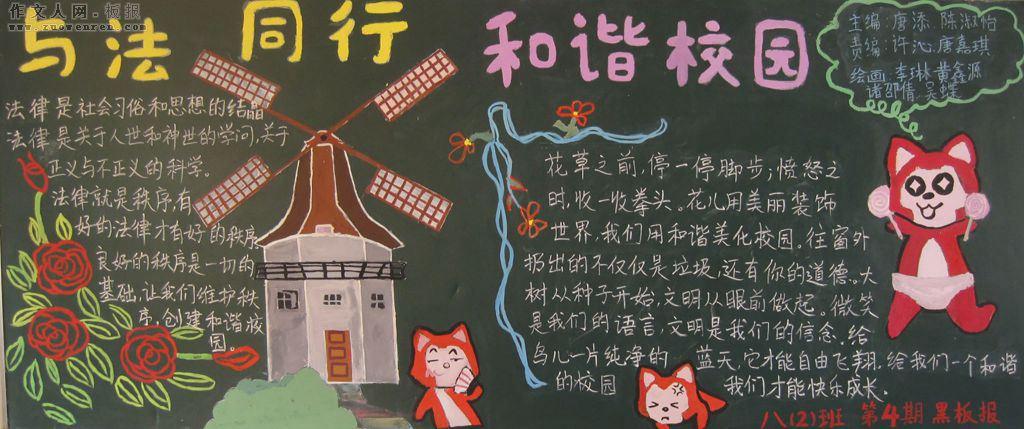 作文人网·板报
www.zuowenren.com
与法同行
和谐校园
主编:唐添 陈淑怡
责编:许沁 唐嘉琪
绘画:李琳 黄鑫源
诸邵倩 吴蝶
法律是社会习俗和思想的结晶
法律是关于人世和神世的学问,关于
正义与不正义的科学。
法律就是秩序,有
好的法律才有好的秩序
良好的秩序是一切的
基础,让我们维护秩
序,创建和谐校
园。
花草之前,停一停脚步;愤怒之
时,收一收拳头。花儿用美丽装饰
世界,我们用和谐美化校园。往窗外
扔出的不仅仅是垃圾,还有你的道德。大
树从种子开始,文明从眼前做起。微笑
是我们的语言,文明是我们的信念。给
鸟儿一片纯净的 蓝天,它才能自由飞翔,给我们一个和谐
的校园 我们才能快乐成长。
八(2)班 第4期黑板报